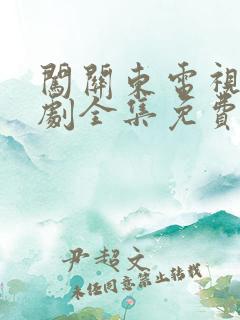 闖關東電視
劇全集免費
尹超文
未經同意禁止轉載